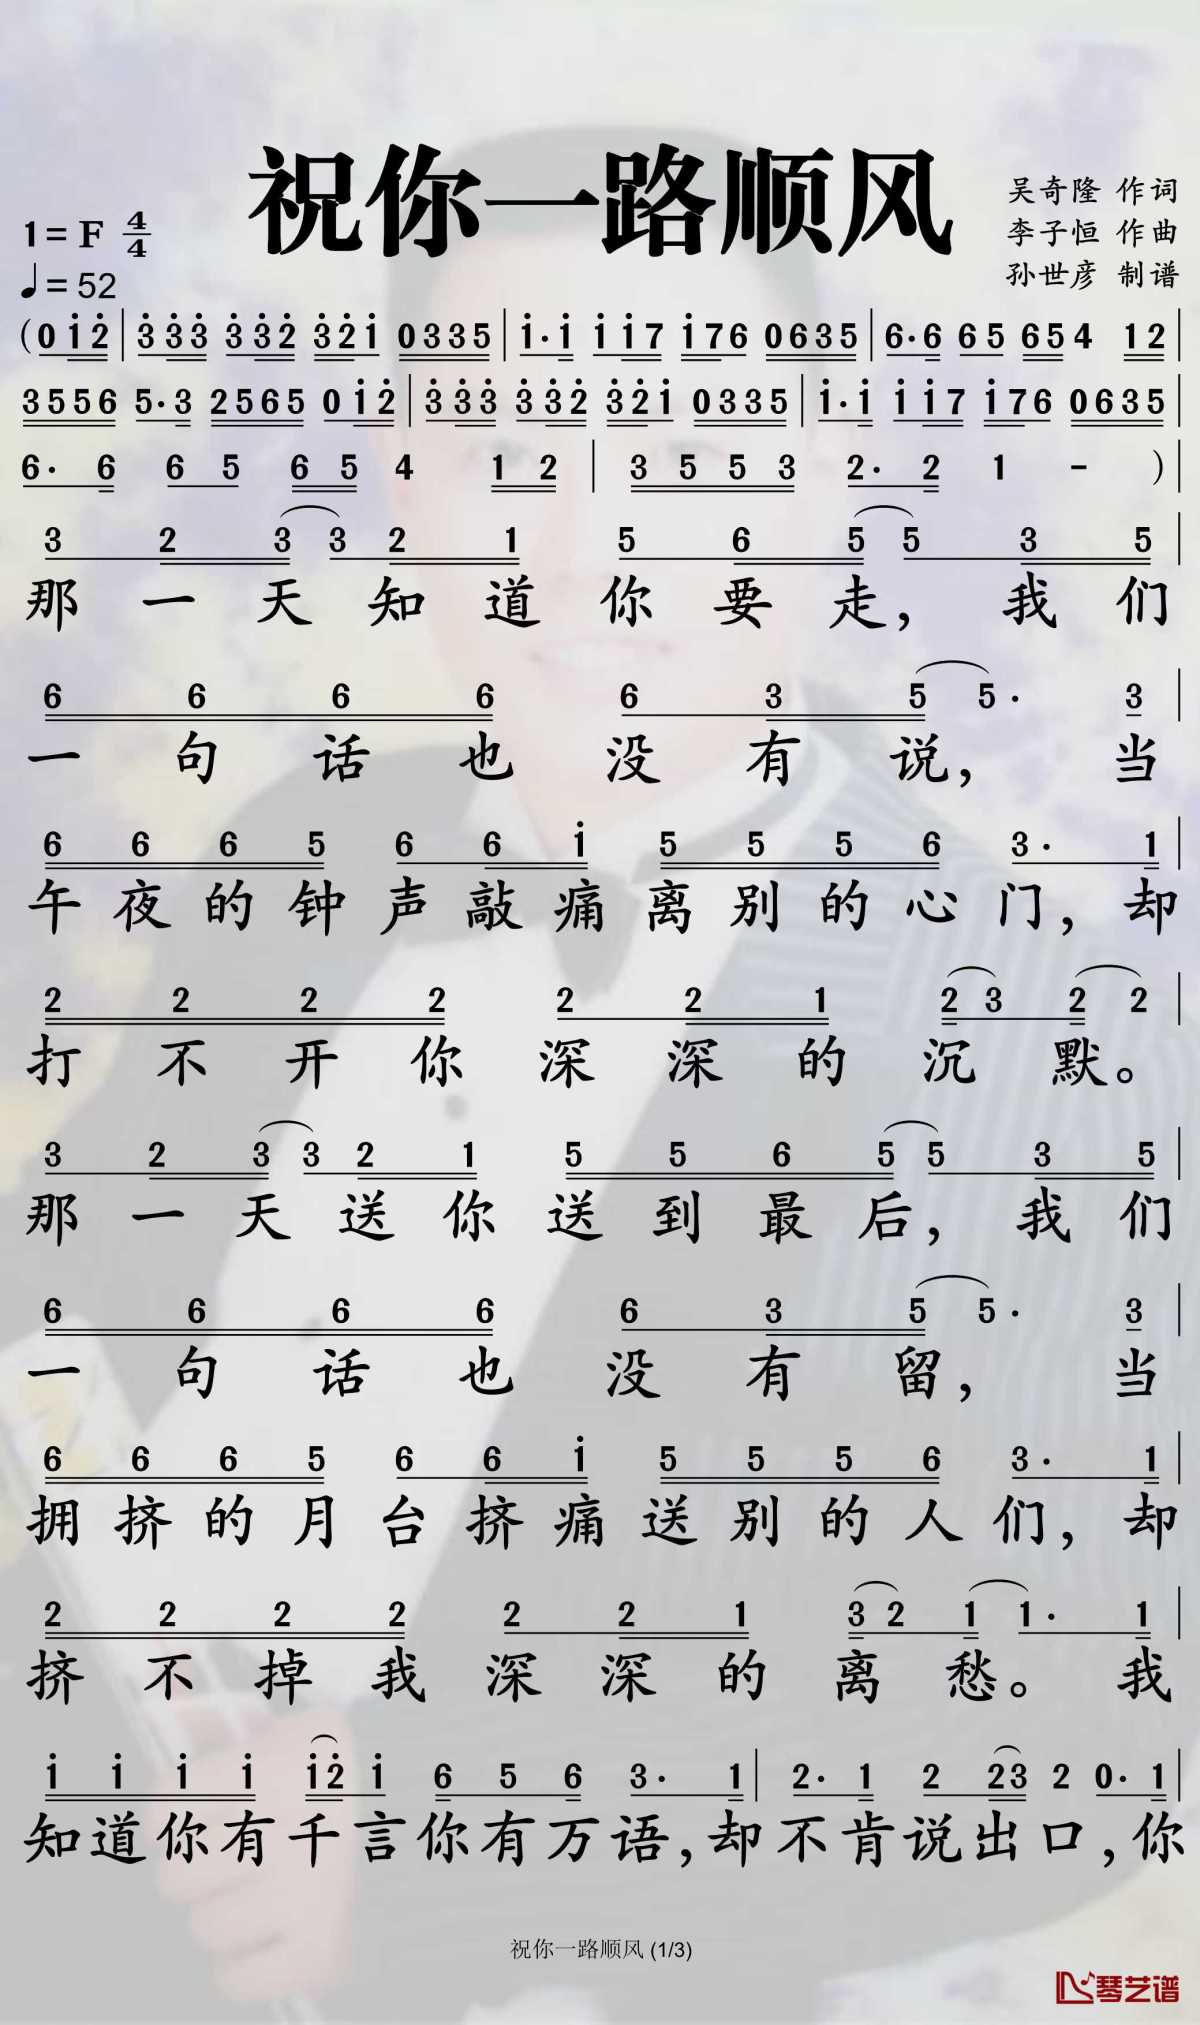 祝你一路顺风
吴奇隆 作词
李子恒 作曲
孙世彦 制谱
1= F 4/4
♩= 52
(0 i̇ 2̇ | 3̇ 3̇ 3̇ 3̇ 3̇ 2̇ 3̇ 2̇ i̇ 0 3 3 5 | i̇· i̇ i̇ i̇ 7 i̇ 7 6 0 6 3 5 | 6· 6 6 5 6 5 4 1 2 |
3 5 5 6 5· 3 2 5 6 5 0 i̇ 2̇ | 3̇ 3̇ 3̇ 3̇ 3̇ 2̇ 3̇ 2̇ i̇ 0 3 3 5 | i̇· i̇ i̇ i̇ 7 i̇ 7 6 0 6 3 5 |
6· 6 6 5 6 5 4 1 2 | 3 5 5 3 2· 2 1 - ) |
3 2 3 3 2 1 5 6 5 5 3 5 |
那一天知道你要走，我们
6 6 6 6 6 3 5 5· 3 |
一句话也没有说，当
6 6 6 5 6 6 i̇ 5 5 5 6 3· 1 |
午夜的钟声敲痛离别的心门，却
2 2 2 2 2 2 1 2 3 2 2 |
打不开你深深的沉默。
3 2 3 3 2 1 5 5 6 5 5 3 5 |
那一天送你送到最后，我们
6 6 6 6 6 3 5 5· 3 |
一句话也没有留，当
6 6 6 5 6 6 i̇ 5 5 5 6 3· 1 |
拥挤的月台挤痛送别的人们，却
2 2 2 2 2 2 1 3 2 1 1· 1 |
挤不掉我深深的离愁。我
i̇ i̇ i̇ i̇ i̇ 2̇ i̇ 6 5 6 3· 1 | 2· 1 2 2 3 2 0· 1 |
知道你有千言你有万语，却不肯说出口，你
祝你一路顺风 (1/3)
琴艺谱